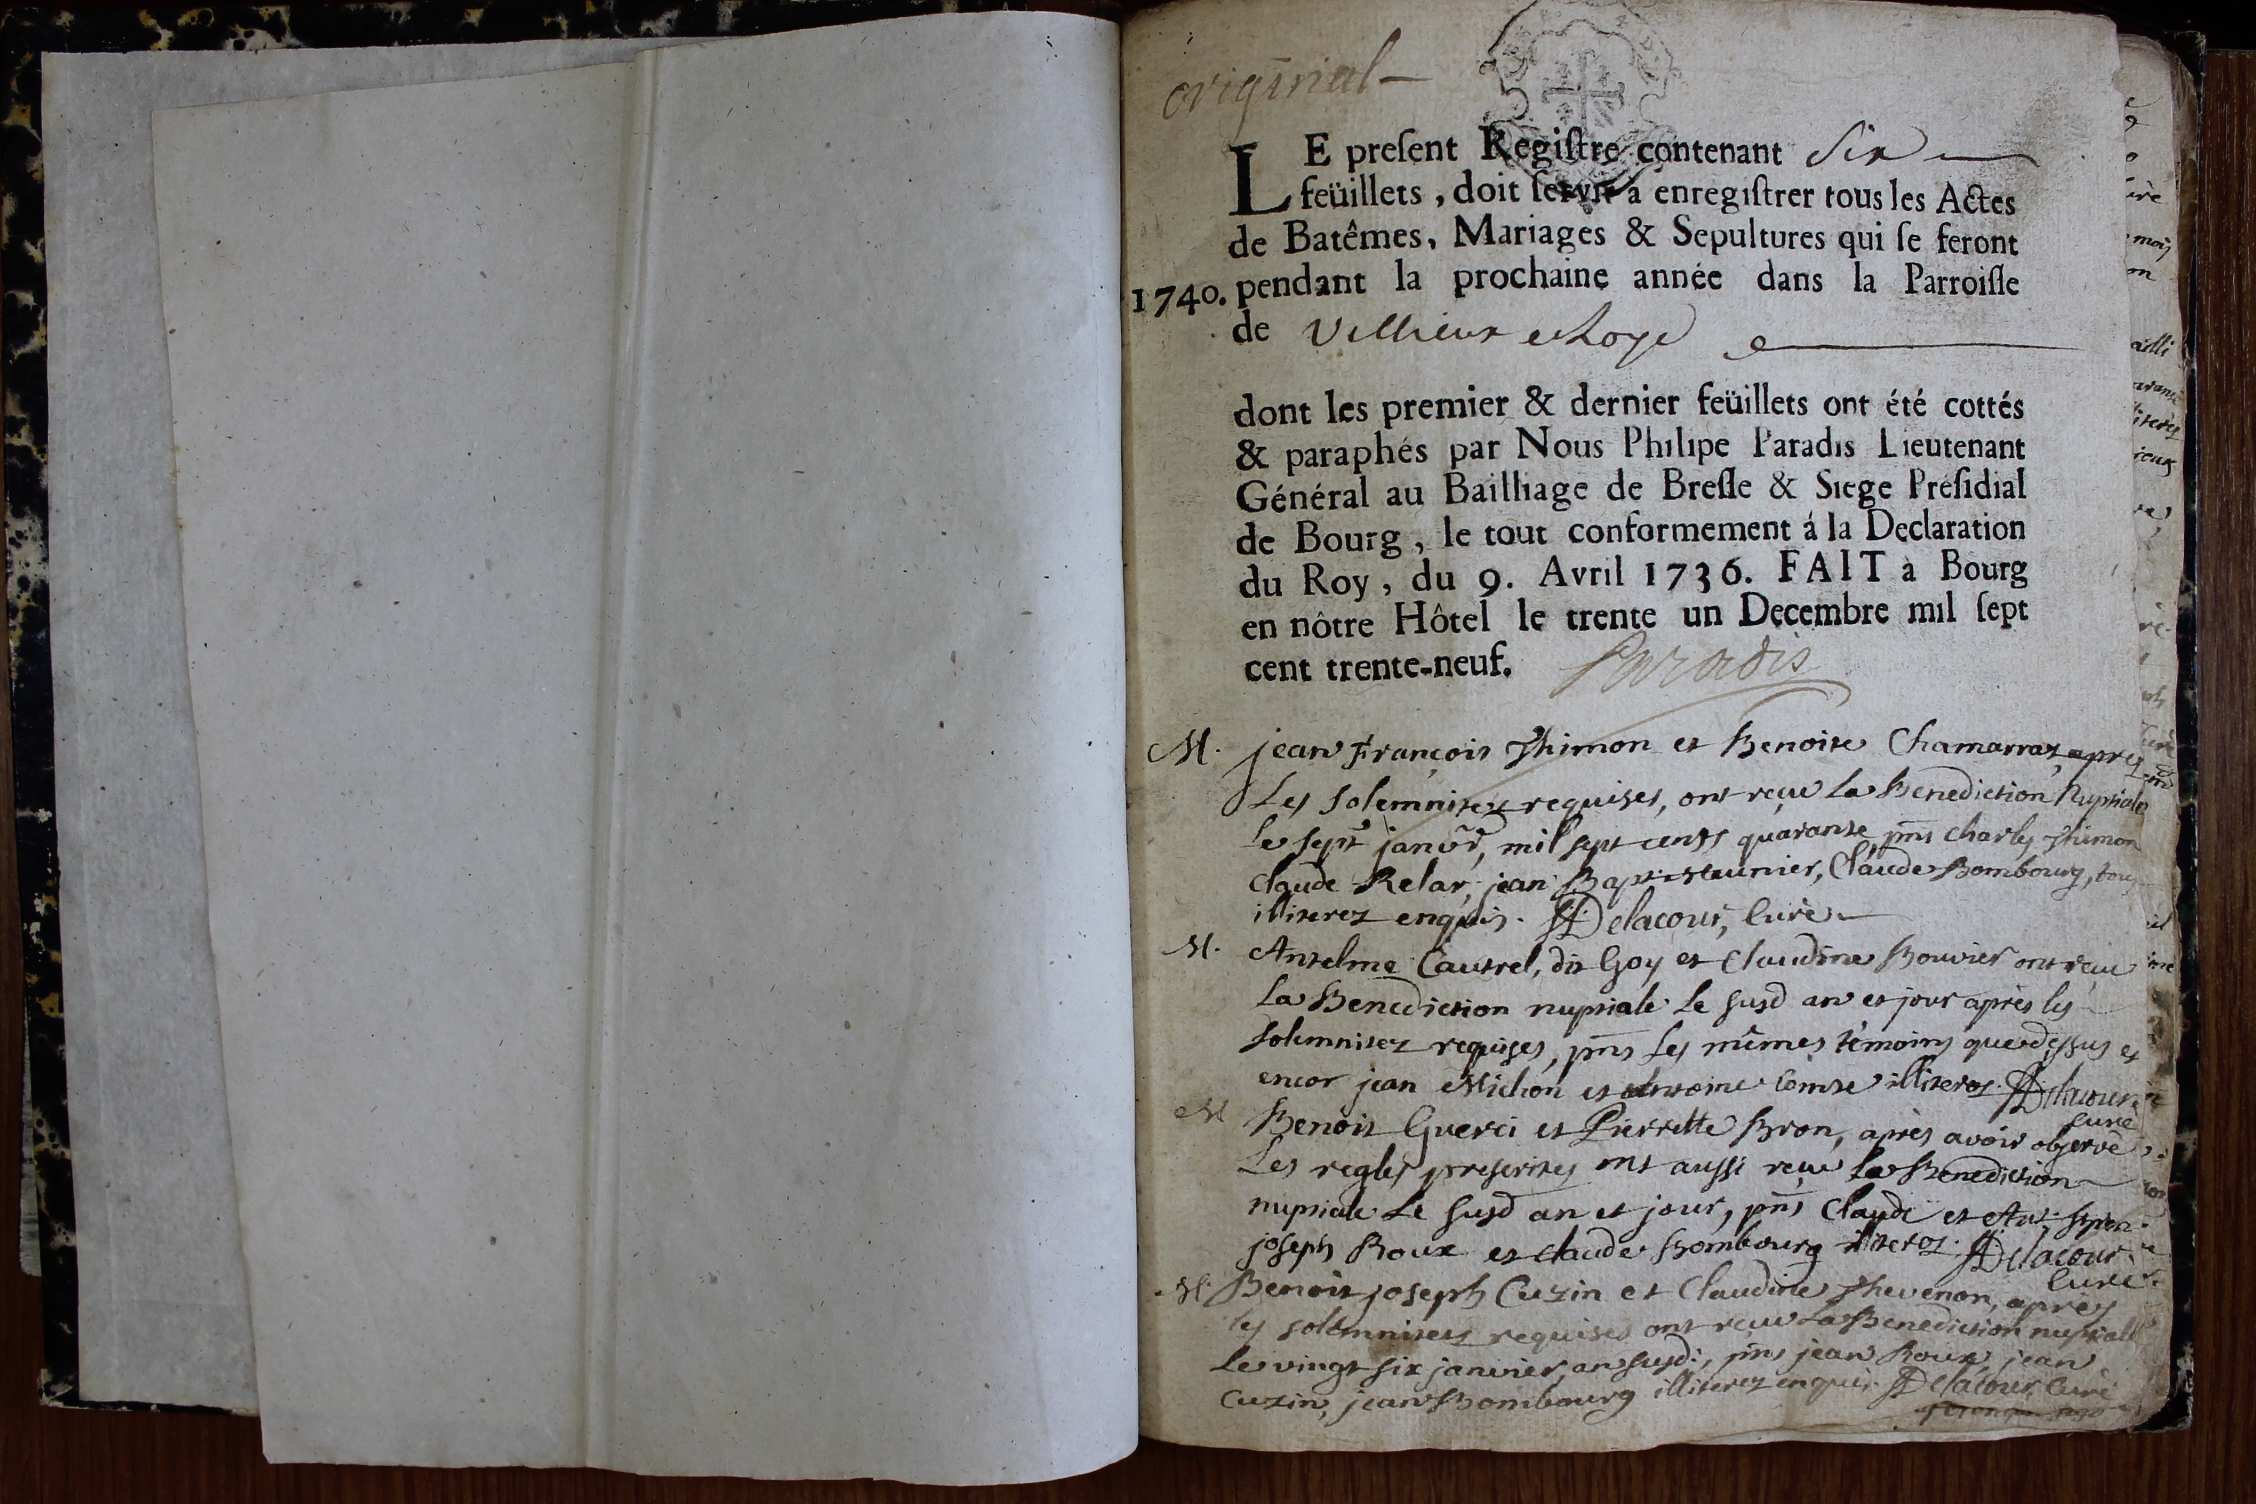 original
LE preſent Regiſtre contenant Six
feüillets, doit ſervir à enregiſtrer tous les Actes
de Batêmes, Mariages & Sepultures qui ſe feront
1740. pendant la prochaine année dans la Parroiſſe
de Villieux et Loye
dont les premier & dernier feüillets ont été cottés
& paraphés par Nous Philipe Paradis Lieutenant
Général au Bailliage de Breſſe & Siege Préſidial
de Bourg, le tout conformement á la Declaration
du Roy, du 9. Avril 1736. FAIT à Bourg
en nôtre Hôtel le trente un Decembre mil ſept
cent trente-neuf. Paradis
M. jean François Thimon et Benoite Chamarraz, apres
Les solemnitez requises, ont reçu La Benediction Nuptiale
le sept janvr, mil sept cents quarante, pnts charles Thimon
Claude Relar, jean Bapt. Meunier, Claude Bombourg, tous
illiterez enquis. Delacour, Curé
M. Antelme Cautrel, dit Goy et Claudine Bouvier ont reçu
La Benediction nuptiale Le susd an et jour après les
solemnitez requises, pnts Les mêmes témoins que dessus et
encor jean Michon et Antoine Comte illiterez. Delacour
Curé
M Benoit Guerci et Pierrette Bron, après avoir observé
Les regles prescrites ont aussi reçu La Benediction
nuptiale Le susd an et jour, pnts Claude et Ant. Bron.
joseph Roux et claude Bombourg illiterez. Delacour
Curé
M. Benoit joseph Cuzin et Claudine Thevenon, après
les solemnitez requises ont reçu La Benediction nuptiale
Le vingt six janvier, an susd:, pnts jean Roux, jean
Cuzin, jean Bombourg illiterez enquis. Delacour, Curé